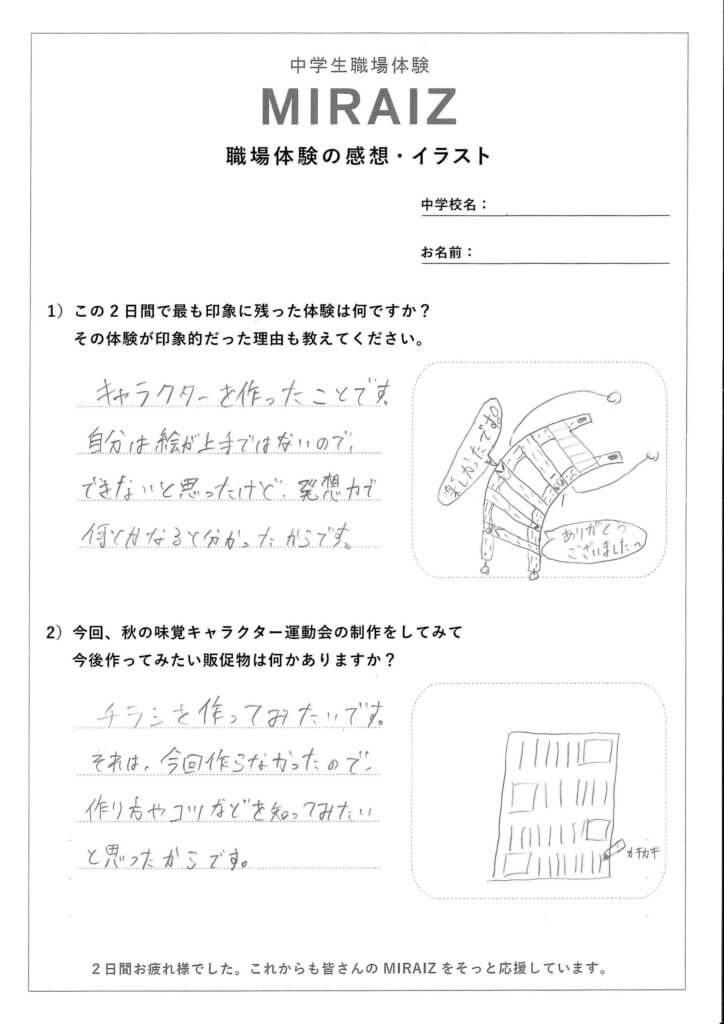 中学生職場体験
MIRAIZ
職場体験の感想・イラスト
中学校名：
お名前：
1）この２日間で最も印象に残った体験は何ですか？
その体験が印象的だった理由も教えてください。
キャラクターを作ったことです。
自分は絵が上手ではないので、
できないと思ったけど、発想力で
何とかなると分かったからです。
楽しかったですね。
ありがとう
ございました〜
2）今回、秋の味覚キャラクター運動会の制作をしてみて
今後作ってみたい販促物は何かありますか？
チラシを作ってみたいです。
それは、今回作らなかったので、
作り方やコツなどを知ってみたい
と思ったからです。
カキカキ
２日間お疲れ様でした。これからも皆さんの MIRAIZ をそっと応援しています。